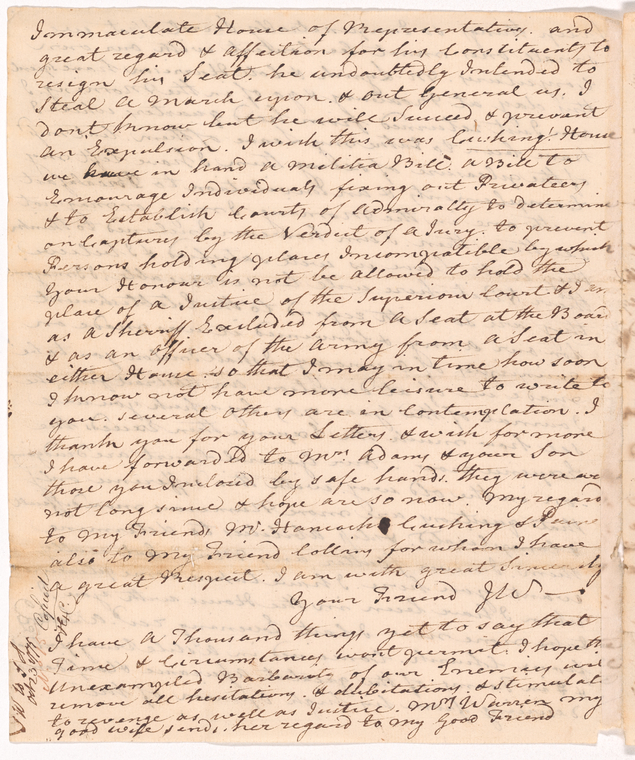 Immaculate House of Representatives. and
great regard & affection for his Constituents to
resign his Seat. he undoubtedly Intended to
Steal a march upon, & out General us. I
dont know but he will Suceed, & prevent
an Expulsion. I wish this was Cushing! House
we have in hand a Militia Bill. a Bill to
Encourage Individuals fixing out Privateers
& to Establish Courts of Admiralty to determine
on Captures by the Verdict of a Jury. to prevent
Persons holding places Incompatible by which
Your Honour is not be allowed to hold the
place of a Justice of the Superiour Court & I am
as a Sheriff Excluded from a Seat at the Board
& as an officer of the Army from a Seat in
either House. so that I may in time how soon
I know not have more leisure to write to
you. several others are in Contemplation. I
thank you for your Letters & wish for more
I have forwarded to Mrs. Adams & your Son
those you Inclosed by safe hands. they were we
not long since & hope are so now. My regard
to my Friends Mr. Hancock Cushing &
also to My Friend Collins for whom I have
a great Respect. I am with great Sincerity
Your Friend JW—
I have a Thousand things yet to say that
Time & Circumstances wont permit. I hope th
Unexampled Barbarity of our Enemies will
remove all hesitations, & dibilitations, & stimulat
to revenge as well as Justice. Mrs Warren my
good wife sends her regard to my Good Friend